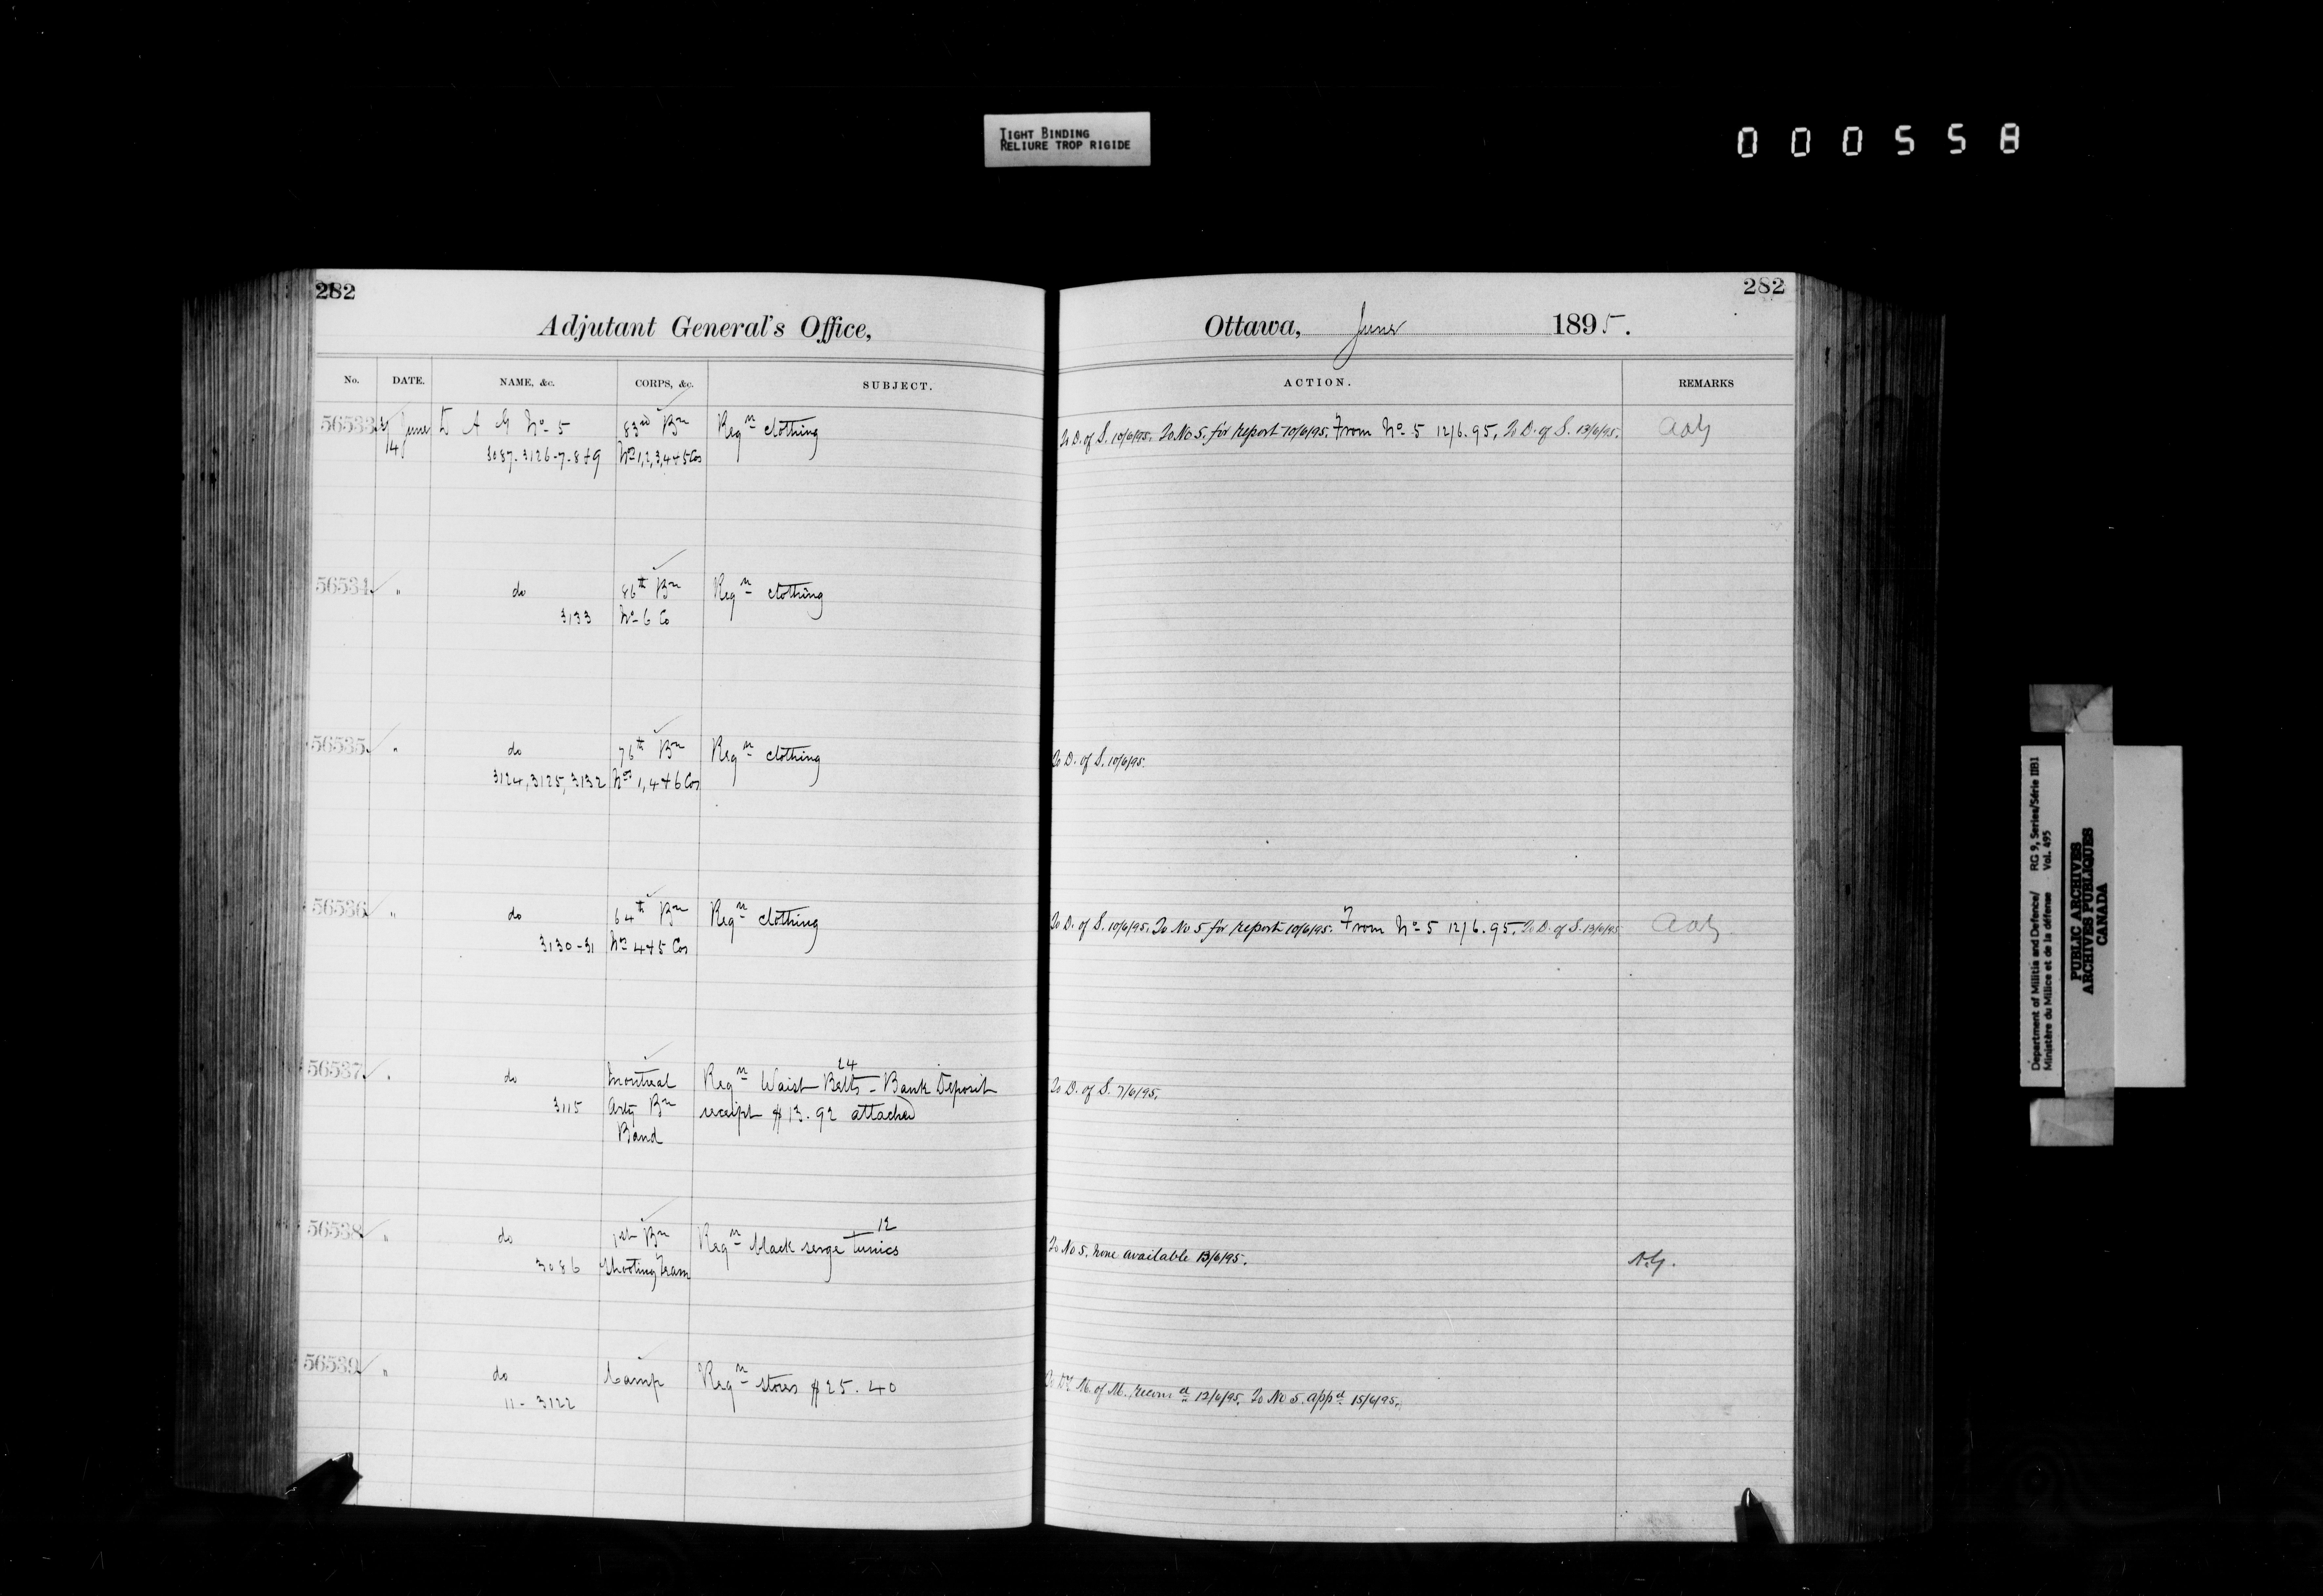 TIGHT BINDING
RELIURE TROP RIGIDE
000558
282
Adjutant General's Office,
No. DATE. NAME, &c. CORPS, &c. SUBJECT.
56533 June D A G No 5 83rd Bn Reqn clothing
14 3087-3126-7-8+9 Nos 1,2,3,4+5 Cos
56534 " do 86th Bn Reqn clothing
3133 No 6 Co
56535 " do 76th Bn Reqn clothing
3124, 3125, 3132 Nos 1, 4+6 Cos
56536 " do 64th Bn Reqn clothing
3130-31 Nos 4+5 Cos
24
56537 " do Montreal Reqn Waist Belts - Bank Deposit
3115 Arty Bn receipt $13.92 attached
Band
12
56538 " do 1st Bn Reqn black serge tunics
3086 Shooting Team
56539 " do Camp Reqn stores $25.40
11- 3122
282
Ottawa, June 1895.
ACTION. REMARKS
To D. of S. 10/6/95. To No 5. for report 10/6/95. From No 5 12/6.95. To D. of S. 13/6/95.
To D. of S. 10/6/95.
To D. of S. 10/6/95. To No 5 for report 10/6/95. From No 5 12/6.95. To D. of S. 13/6/95
To D. of S. 7/6/95.
To No 5. none available 13/6/95. A.G.
M. of M. recomd 12/6/95. To No 5. appd 15/6/95.
Department of Militia and Defence/ RG 9, Series/Série IIB1
Ministère du Milice et de la défense Vol. 495
PUBLIC ARCHIVES
ARCHIVES PUBLIQUES
CANADA